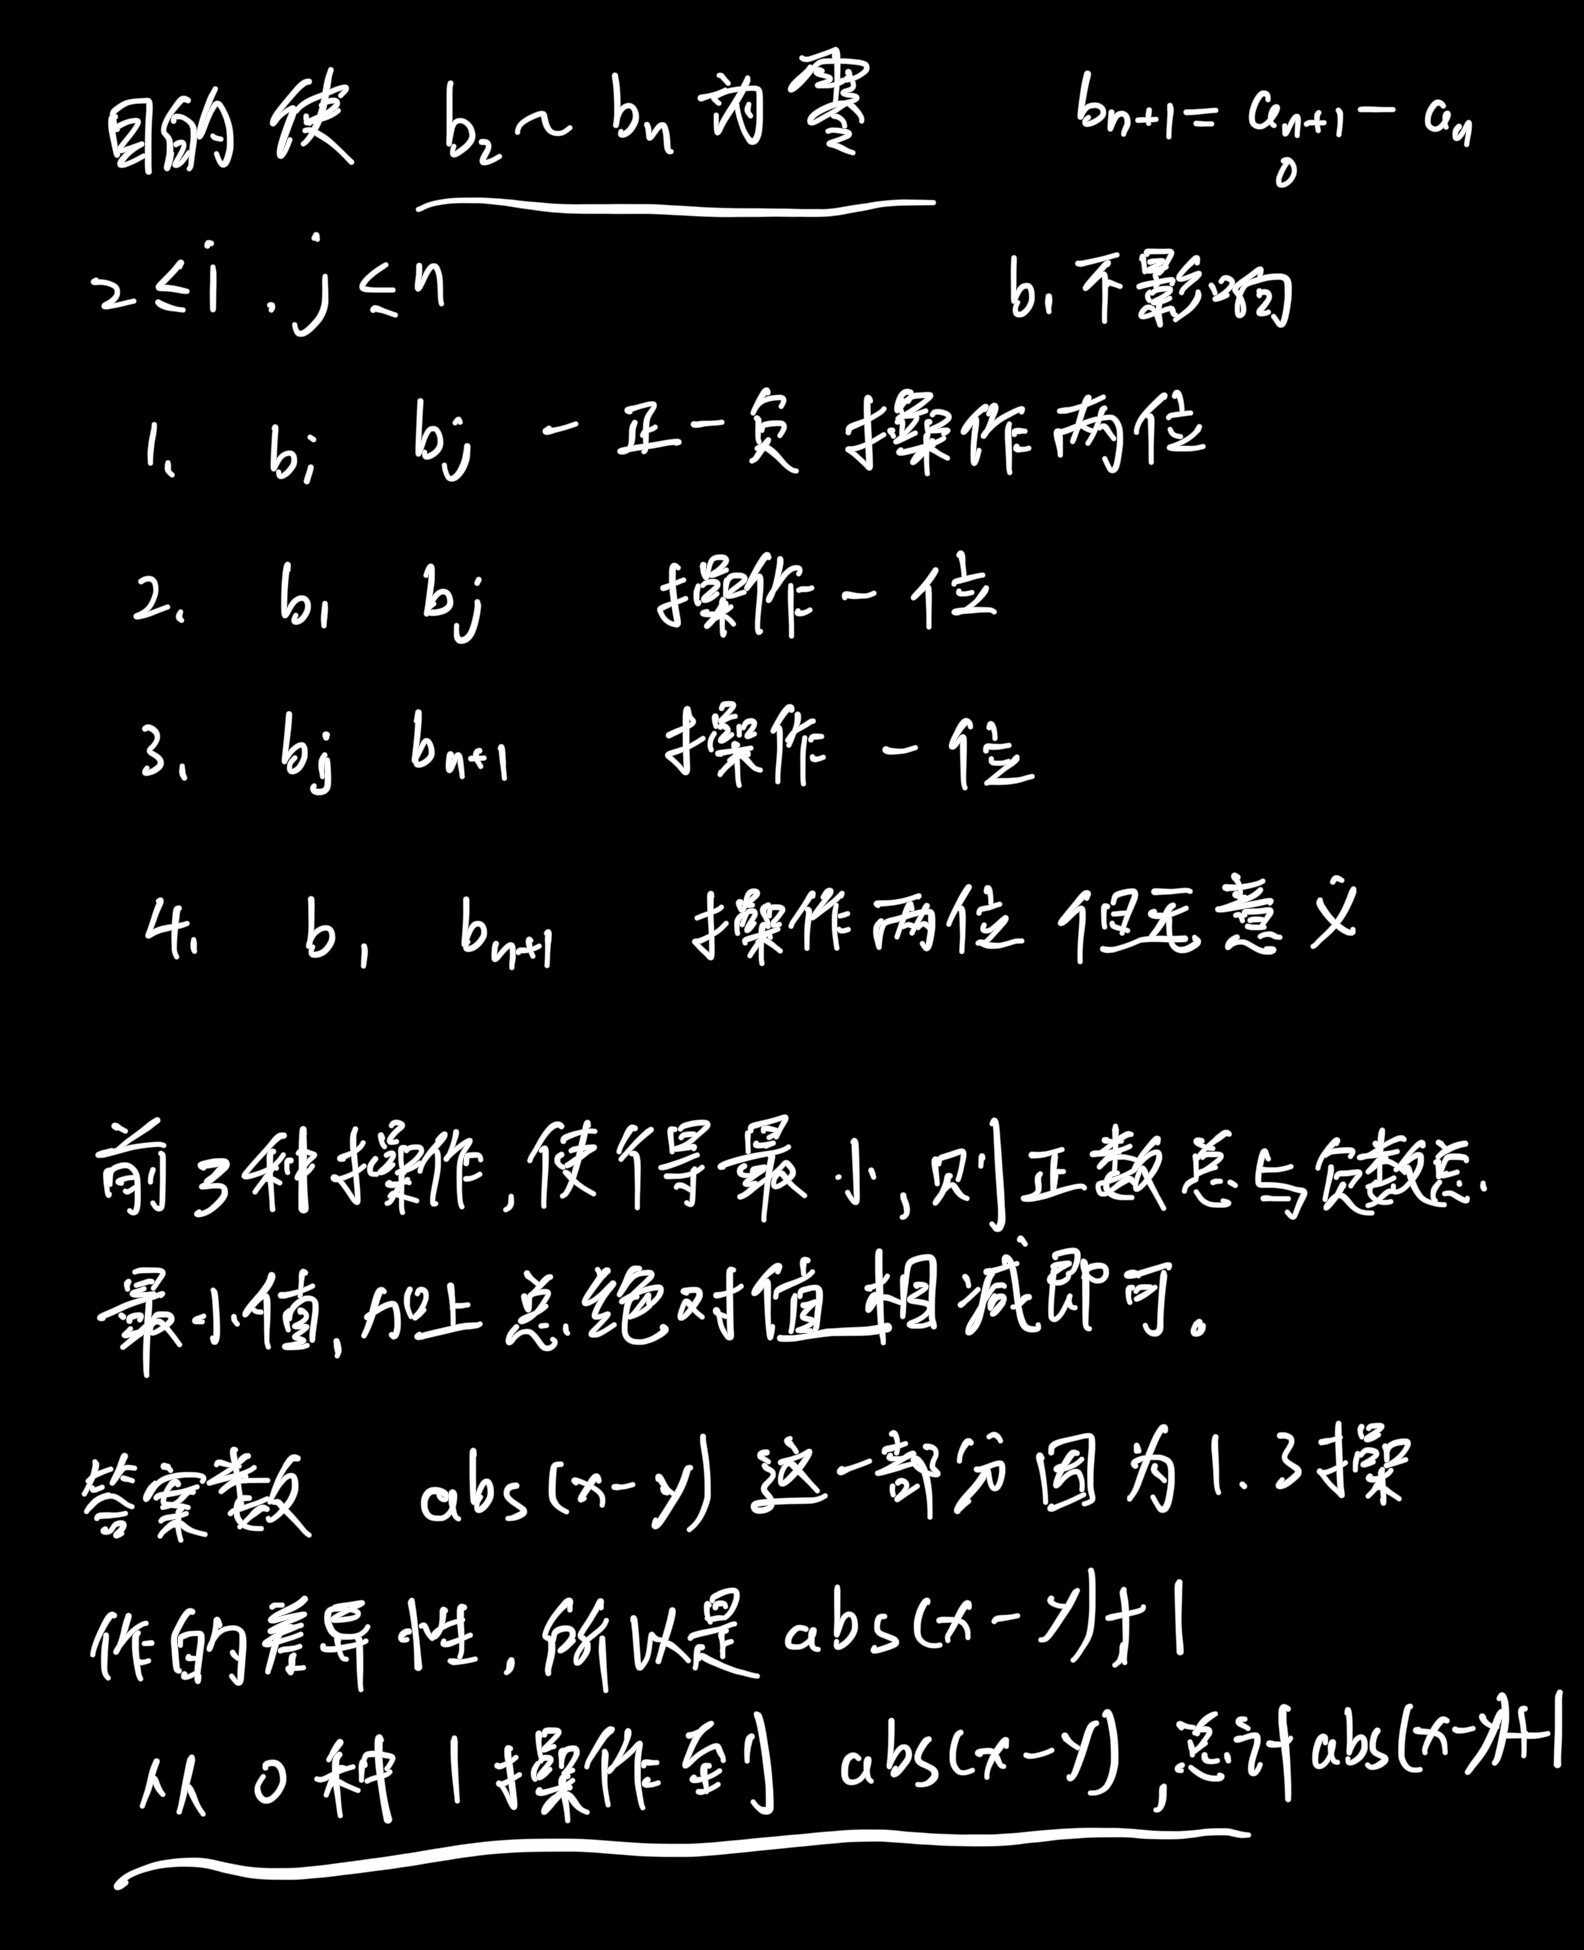 目的使 b₂~bₙ 为零 bₙ₊₁=aₙ₊₁-aₙ
0
2≤i.j≤n b₁不影响
1、 bᵢ bⱼ 一正一负 操作两位
2、 b₁ bⱼ 操作一位
3、 bⱼ bₙ₊₁ 操作一位
4、 b₁ bₙ₊₁ 操作两位 但无意义
前3种操作,使得最小,则正数总与负数总
最小值,加上总绝对值相减即可。
答案数 abs(x-y) 这一部分因为1.3操
作的差异性,所以是abs(x-y)+1
从0种1操作到abs(x-y),总计abs(x-y)+1